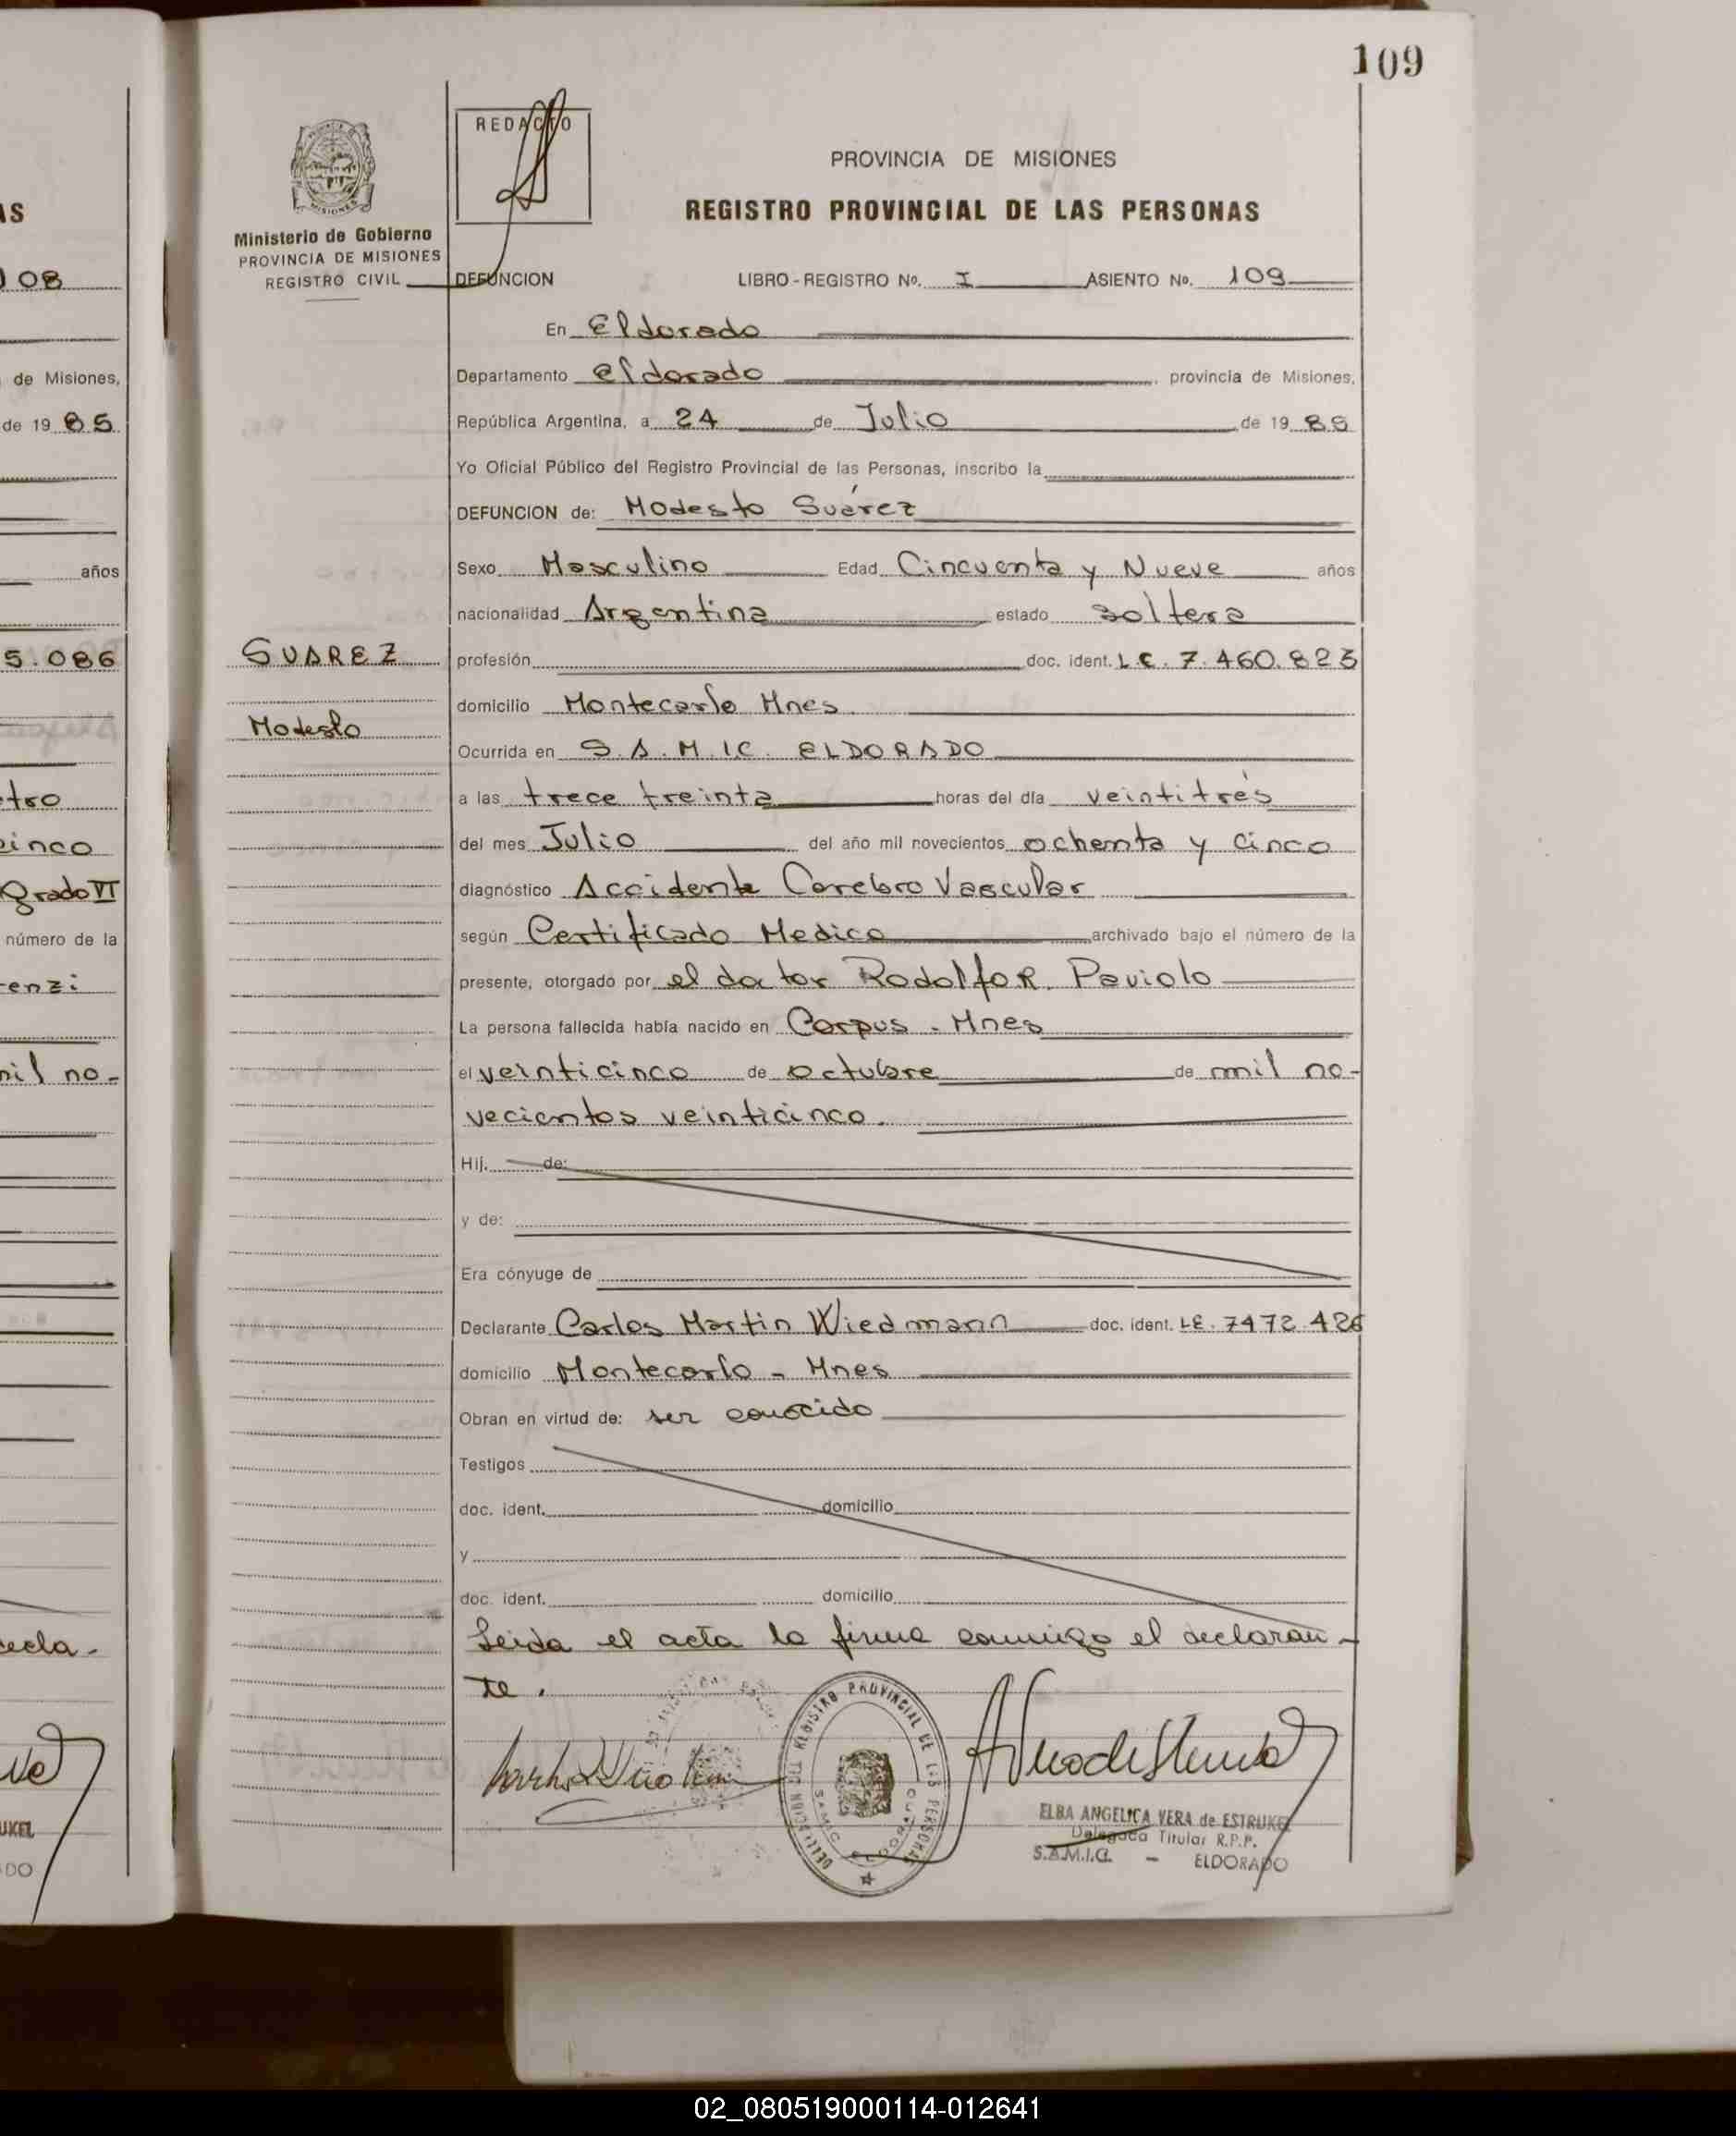 109
AS
108
de Misiones,
de 19 85
años
5.086
tro
cinco
Grado VI
número de la
renzi
mil no-
decla-
UKEL
DO
MISIONES
Ministerio de Gobierno
PROVINCIA DE MISIONES
REGISTRO CIVIL
SUAREZ
Modesto
REDACTO
PROVINCIA DE MISIONES
REGISTRO PROVINCIAL DE LAS PERSONAS
DEFUNCION LIBRO-REGISTRO No. I ASIENTO No. 109
En Eldorado
Departamento Eldorado, provincia de Misiones,
República Argentina, a 24 de Julio de 19 85
Yo Oficial Público del Registro Provincial de las Personas, inscribo la
DEFUNCION de: Modesto Suárez
Sexo Masculino Edad Cincuenta y Nueve años
nacionalidad Argentina estado soltera
profesión doc. ident. L.E. 7.460.823
domicilio Montecarlo Mnes.
Ocurrida en S.A.M.I.C. ELDORADO
a las trece treinta horas del día veintitrés
del mes Julio del año mil novecientos ochenta y cinco
diagnóstico Accidente Cerebro Vascular
según Certificado Medico archivado bajo el número de la
presente, otorgado por el doctor Rodolfo R. Paviolo
La persona fallecida había nacido en Corpus - Mnes
el veinticinco de octubre de mil no-
vecientos veinticinco.
Hij. de:
y de:
Era cónyuge de
Declarante Carlos Martin Wiedmann doc. ident. LE. 7472.426
domicilio Montecarlo - Mnes
Obran en virtud de: ser conocido
Testigos
doc. ident. domicilio
y
doc. ident. domicilio
Leida el acta la firma conmigo el declaran-
te.
DELEGACION TIT. REGISTRO PROVINCIAL DE LAS PERSONAS
SAMIC ELDORADO
ELBA ANGELICA VERA de ESTRUKEL
Delegada Titular R.P.P.
S.A.M.I.C. - ELDORADO
02_080519000114-012641